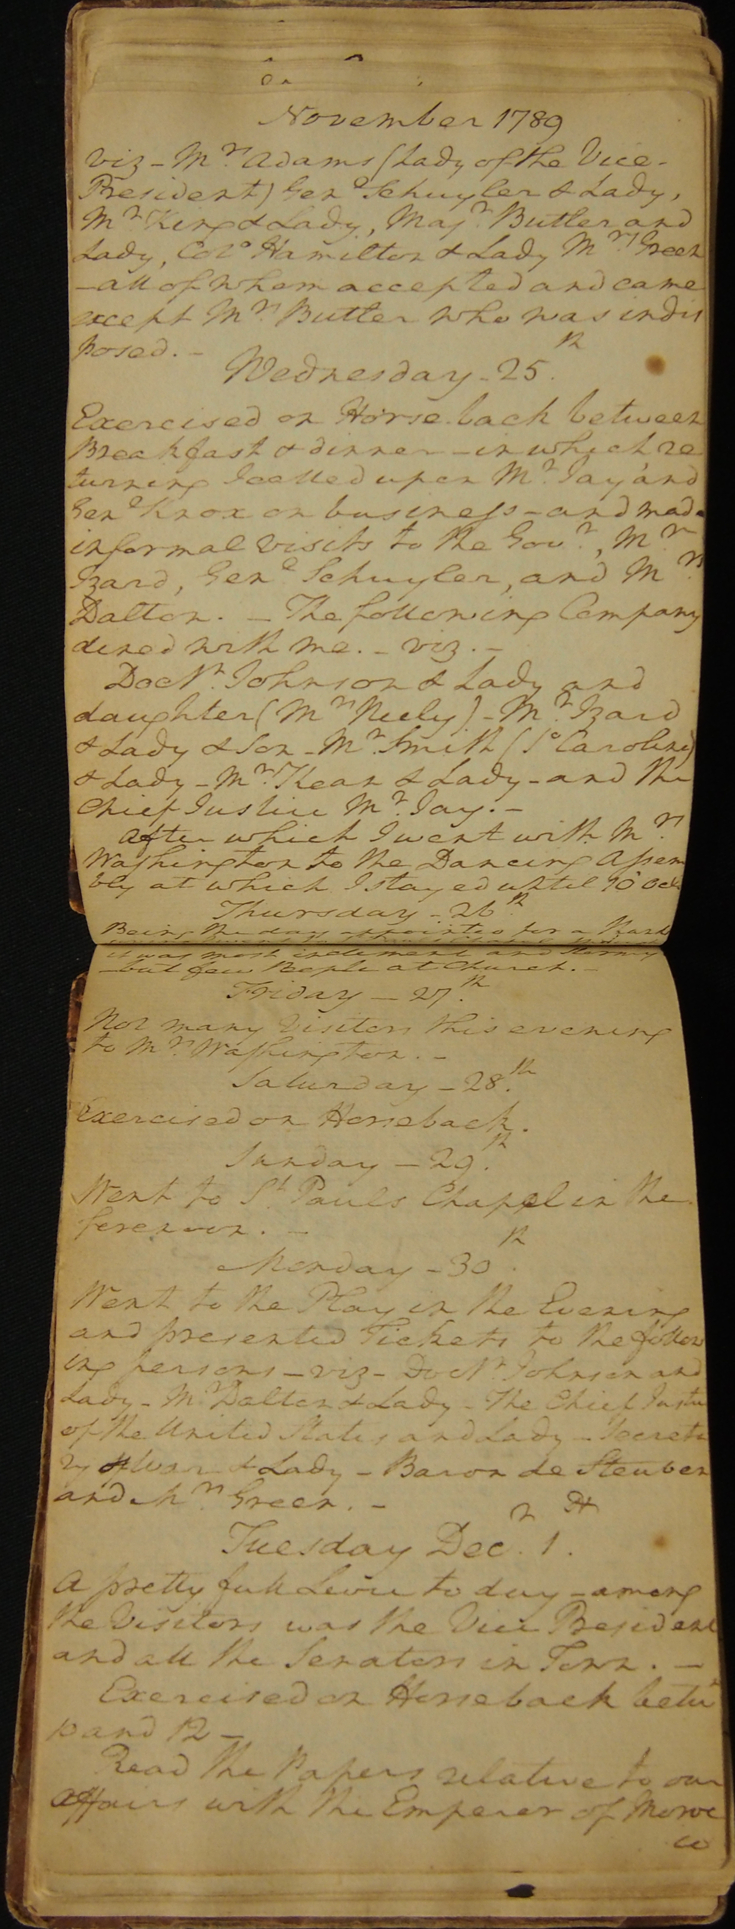 November 1789
viz - Mrs Adams (Lady of the Vice-
President) Genl Schuyler & Lady,
Mr King & Lady, Majr Butler and
Lady, Colo Hamilton & Lady Mrs Green
- all of whom accepted and came
except Mrs Butler who was indis
posed. -
Wednesday - 25th.
Exercised on Horse back between
Breakfast & dinner - in which re
turning I called upon Mr Jay and
Genl Knox on business - and made
informal visits to the Govr, Mr
Izard, Genl Schuyler, and Mrs
Dalton. - The following Company
dined with me. - viz. -
Doctr Johnson & Lady and
daughter (Mrs Neely) - Mr Izard
& Lady & Son - Mr Smith (So Carolina)
& Lady - Mr Kean & Lady - and the
Chief Justice Mr Jay. -
After which I went with Mrs
Washington to the Dancing Assem
bly at which I stayed until 10 Ock.
Thursday - 26th
Being the day appointed for a thank
it was most inclement and stormy
- but few People at Church. -
Friday - 27th.
Not many Visitors this evening
to Mrs Washington. -
Saturday - 28th.
Exercised on Horseback.
Sunday - 29th.
Went to St Pauls Chapel in the
forenoon. -
Monday - 30th.
Went to the Play in the Evening
and presented Tickets to the follow
ing persons - viz - Doctr Johnson and
Lady - Mr Dalton & Lady - The Chief Justice
of the United States and Lady - Secreta
ry of War & Lady - Baron de Steuben
and Mrs Green. -
Tuesday Decr. 1st.
A pretty full Levee to day - among
the Visitors was the Vice President
and all the Senators in Town. -
Exercised on Horseback betw
10 and 12 -
Read the Papers relative to our
affairs with the Emperer of Moroc
co